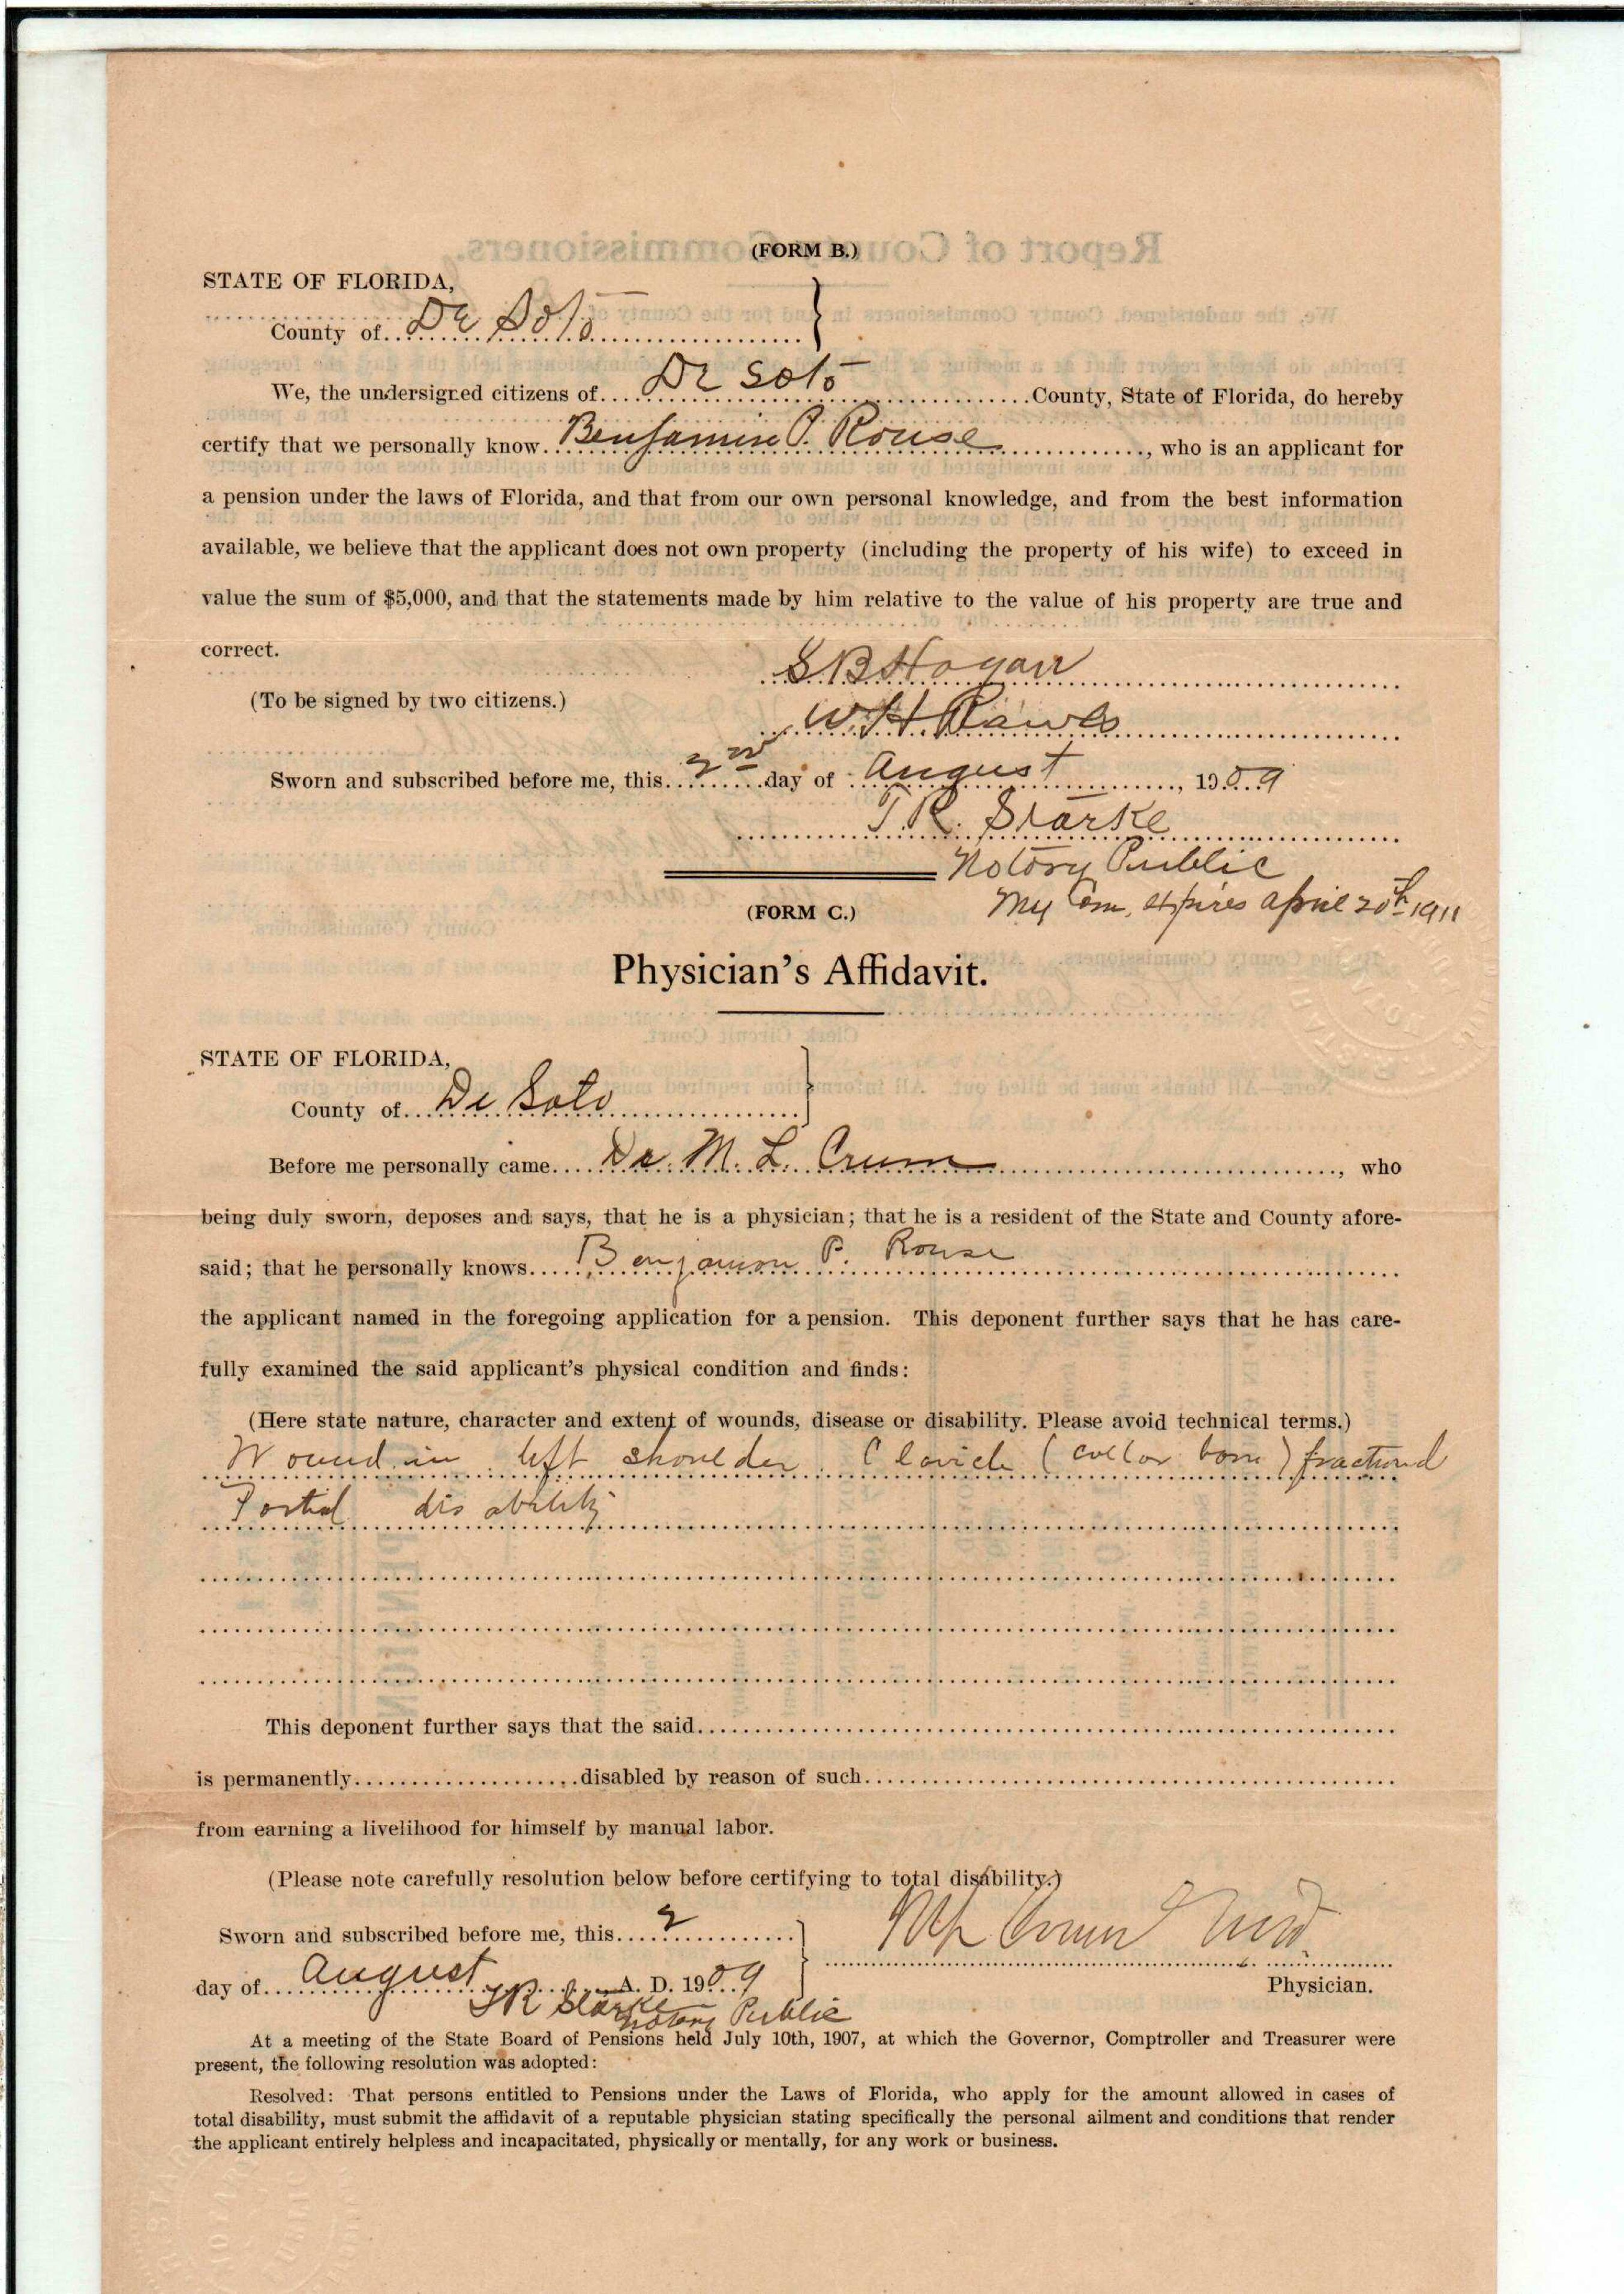 (FORM B.)
STATE OF FLORIDA,
County of De Soto
We, the undersigned citizens of De Soto County, State of Florida, do hereby
certify that we personally know Benjamin P. Rouse, who is an applicant for
a pension under the laws of Florida, and that from our own personal knowledge, and from the best information
available, we believe that the applicant does not own property (including the property of his wife) to exceed in
value the sum of $5,000, and that the statements made by him relative to the value of his property are true and
correct.
S B Hogan
(To be signed by two citizens.)
W H Rawls
Sworn and subscribed before me, this 2nd day of August, 1909
T. R. Starke
Notory Public
(FORM C.)
My Com, expires april 20th 1911
Physician's Affidavit.
STATE OF FLORIDA,
County of De Soto
Before me personally came Dr. M. L. Crum, who
being duly sworn, deposes and says, that he is a physician; that he is a resident of the State and County afore-
said; that he personally knows Benjamin P. Rouse
the applicant named in the foregoing application for a pension. This deponent further says that he has care-
fully examined the said applicant's physical condition and finds:
(Here state nature, character and extent of wounds, disease or disability. Please avoid technical terms.)
Wound in left shoulder. Clavicle (collar bone) fractured
Partial disability
This deponent further says that the said
is permanently disabled by reason of such
from earning a livelihood for himself by manual labor.
(Please note carefully resolution below before certifying to total disability.)
Sworn and subscribed before me, this 2
M L Crum M D
day of August A. D. 1909
Physician.
T R Starke
Notory Public
At a meeting of the State Board of Pensions held July 10th, 1907, at which the Governor, Comptroller and Treasurer were
present, the following resolution was adopted:
Resolved: That persons entitled to Pensions under the Laws of Florida, who apply for the amount allowed in cases of
total disability, must submit the affidavit of a reputable physician stating specifically the personal ailment and conditions that render
the applicant entirely helpless and incapacitated, physically or mentally, for any work or business.